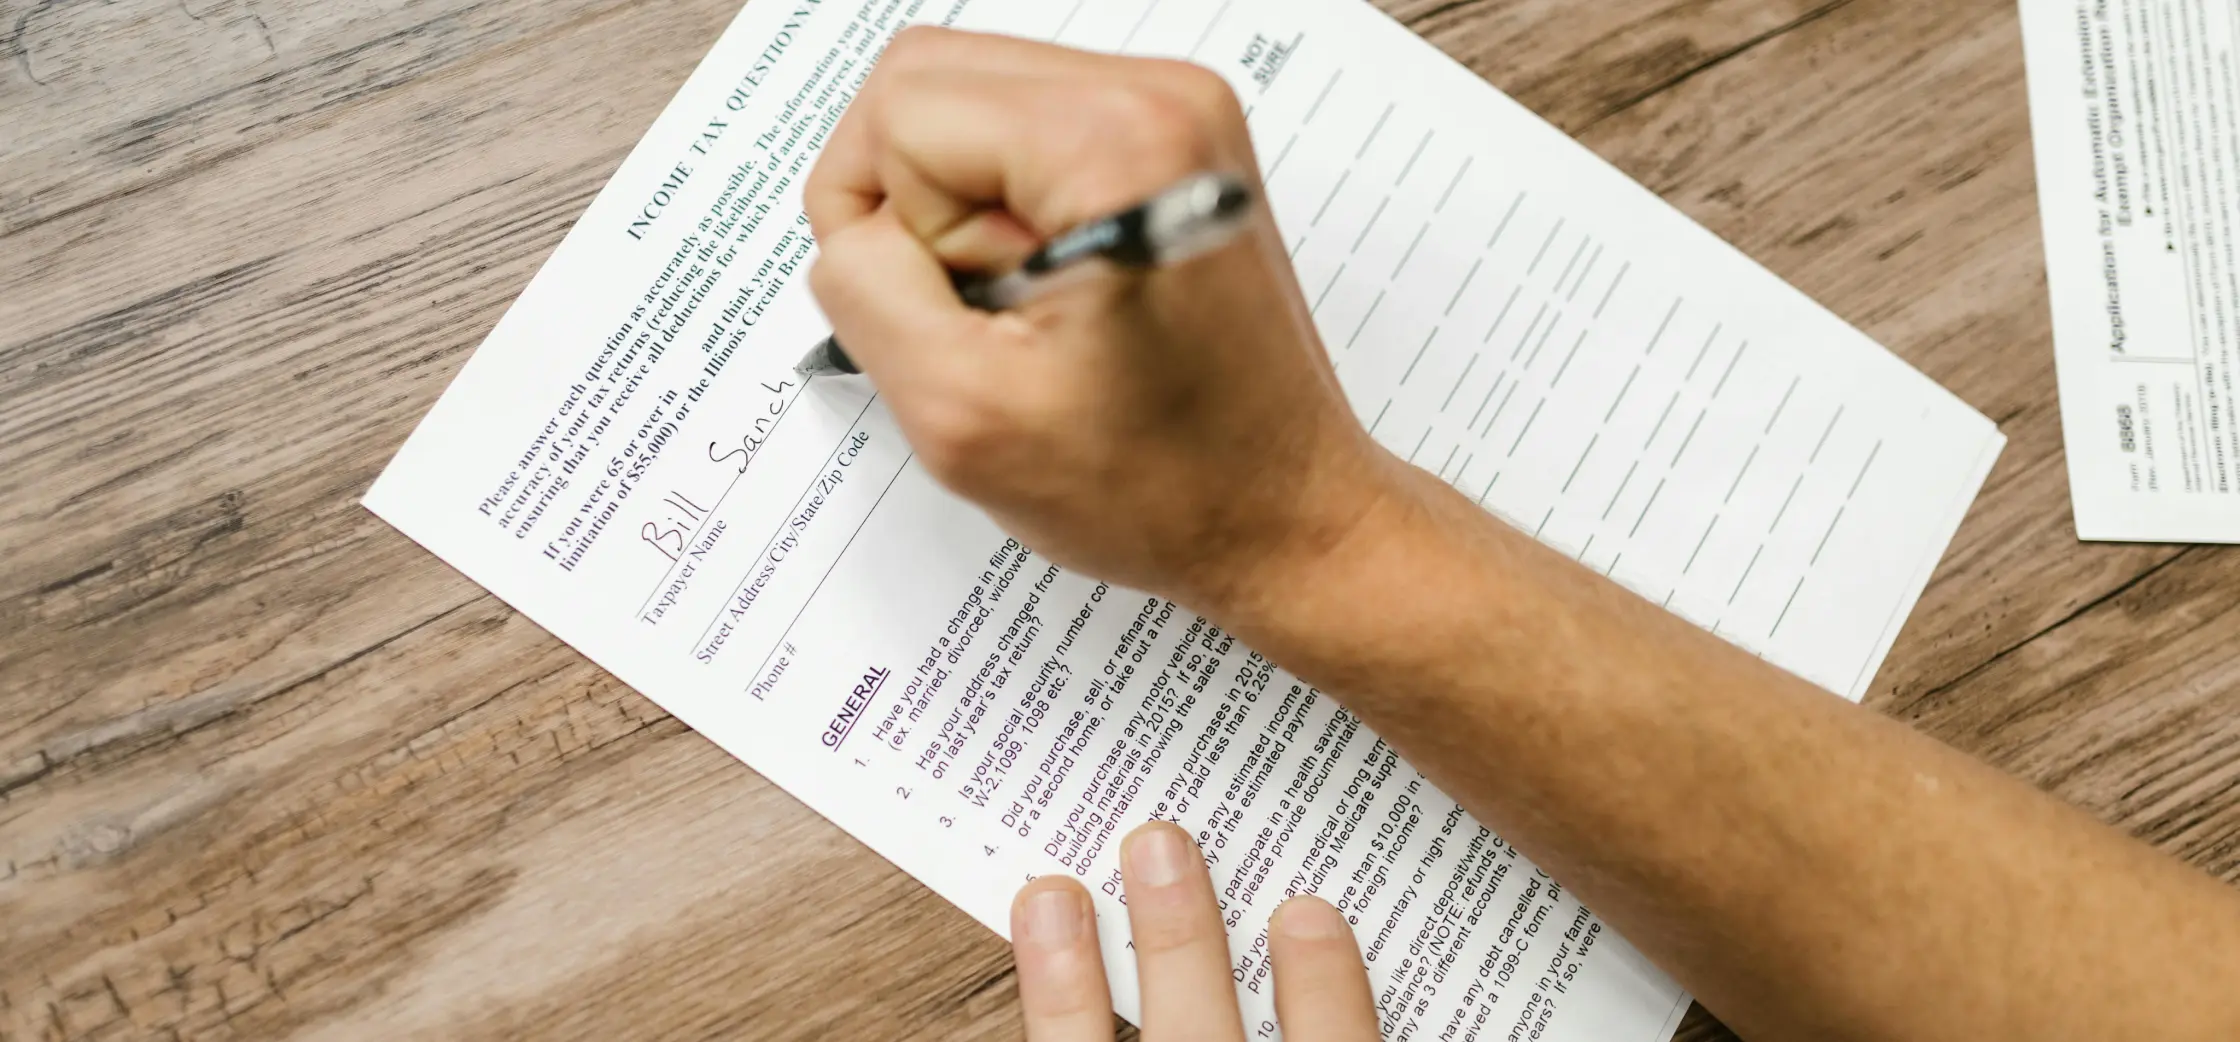 INCOME TAX QUESTIONNA
Please answer each question as accurately as possible. The information you pro
accuracy of your tax returns (reducing the likelihood of audits, interest, and pena
ensuring that you receive all deductions for which you are qualified (saving you mo
If you were 65 or over in and think you may qu
limitation of $55,000) or the Illinois Circuit Break
NOT
SURE
Bill Sanch
Taxpayer Name
Street Address/City/State/Zip Code
Phone #
GENERAL
1. Have you had a change in filing
(ex. married, divorced, widowed
2. Has your address changed from
on last year's tax return?
3. Is your social security number cor
W-2, 1099, 1098 etc.?
4. Did you purchase, sell, or refinance
or a second home, or take out a hom
5. Did you purchase any motor vehicles
building materials in 2015? If so, plea
documentation showing the sales tax
Did ke any purchases in 2015
x or paid less than 6.25%
7. ke any estimated income
ny of the estimated paymen
participate in a health savings
so, please provide documentatio
Did you any medical or long term
prem luding Medicare suppl
10. ore than $10,000 in
e foreign income?
elementary or high scho
you like direct deposit/withd
d/balance? (NOTE: refunds c
any as 3 different accounts, in
have any debt cancelled
eived a 1099-C form, ple
anyone in your famil
ears? If so, were
Form 8868
(Rev. January 2019)
Application for Automatic Extension
Exempt Organization Re